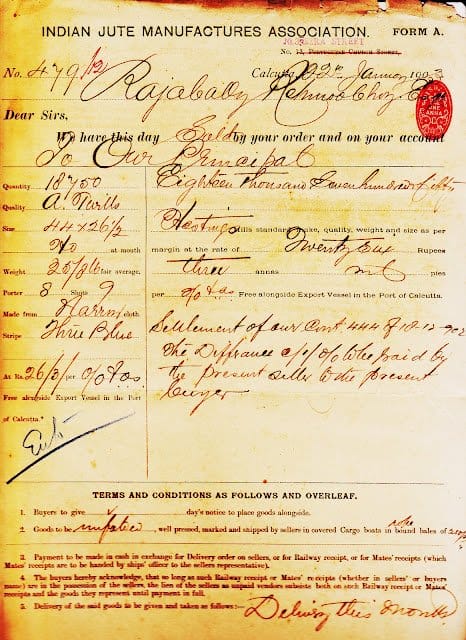 INDIAN JUTE MANUFACTURES ASSOCIATION. FORM A.
No. 12, Portuguese Church Street,
No. 479/12 Calcutta, 2nd January 1903
Rajabally
Dear Sirs,
We have this day Sold by your order and on your account
To Our Principal
Quantity 18750 Eighteen thousand Seven hundred & fifty
Quality A. Twills
Size 44 x 26 1/2 Hastings Mills standard make, quality, weight and size as per
No at mouth margin at the rate of Twenty Six Rupees
Weight fair average. three annas nil pies
Porter 8 Shots 9 per % Free alongside Export Vessel in the Port of Calcutta.
Made from cloth
Stripe Three Blue Settlement of our Cont. 444 of 18-12-902
the Diffrance to be paid by
At Rs. 26/3/ per % the present seller to the present
Free alongside Export Vessel in the Port buyer
of Calcutta.
TERMS AND CONDITIONS AS FOLLOWS AND OVERLEAF.
1. Buyers to give day's notice to place goods alongside.
2. Goods to be , well pressed, marked and shipped by sellers in covered Cargo boats in bound bales of
3. Payment to be made in cash in exchange for Delivery order on sellers, or for Railway receipt, or for Mates' receipts (which
Mates' receipts are to be handed by ships' officer to the sellers representative).
4. The buyers hereby acknowledge, that so long as such Railway receipt or Mates' receipts (whether in sellers' or buyers
name) are in the possession of the sellers, the lien of the sellers as unpaid vendors subsists both on such Railway receipt or Mates'
receipts and the goods they represent until payment in full.
5. Delivery of the said goods to be given and taken as follows:— Delivery this month